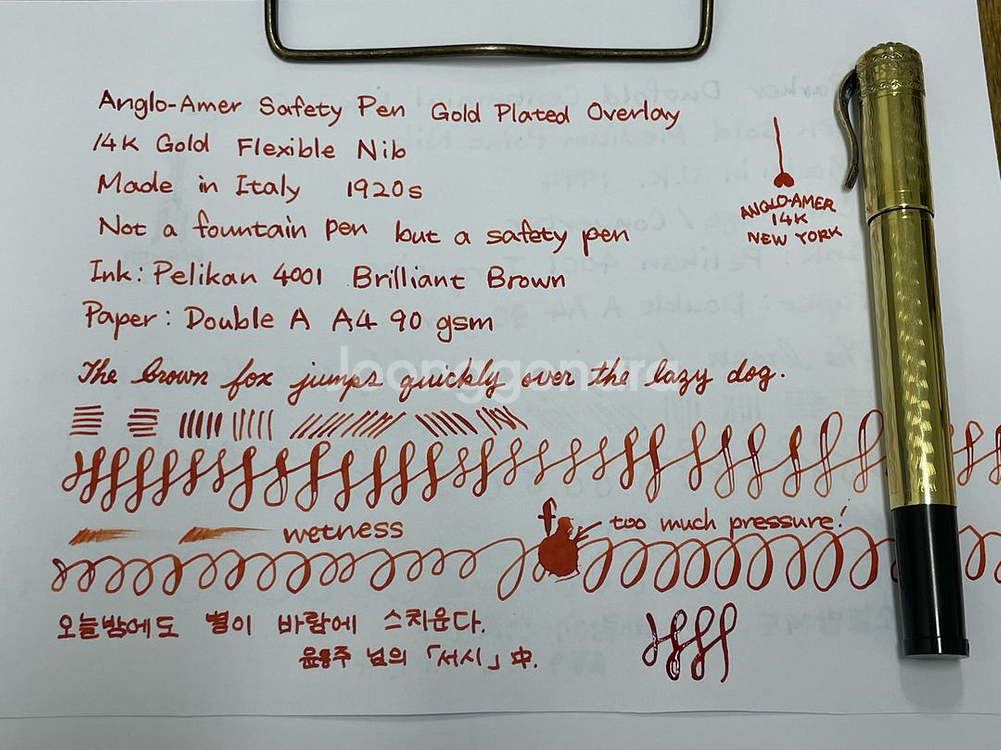 Anglo-Amer Safety Pen Gold Plated Overlay
14K Gold Flexible Nib
Made in Italy 1920s
ANGLO-AMER
14K
NEW YORK
Not a fountain pen but a safety pen
Ink: Pelikan 4001 Brilliant Brown
Paper: Double A A4 90 gsm
The brown fox jumps quickly over the lazy dog.
wetness
f
too much pressure!
오늘밤에도 별이 바람에 스치운다.
윤동주 님의 「서시」 中.